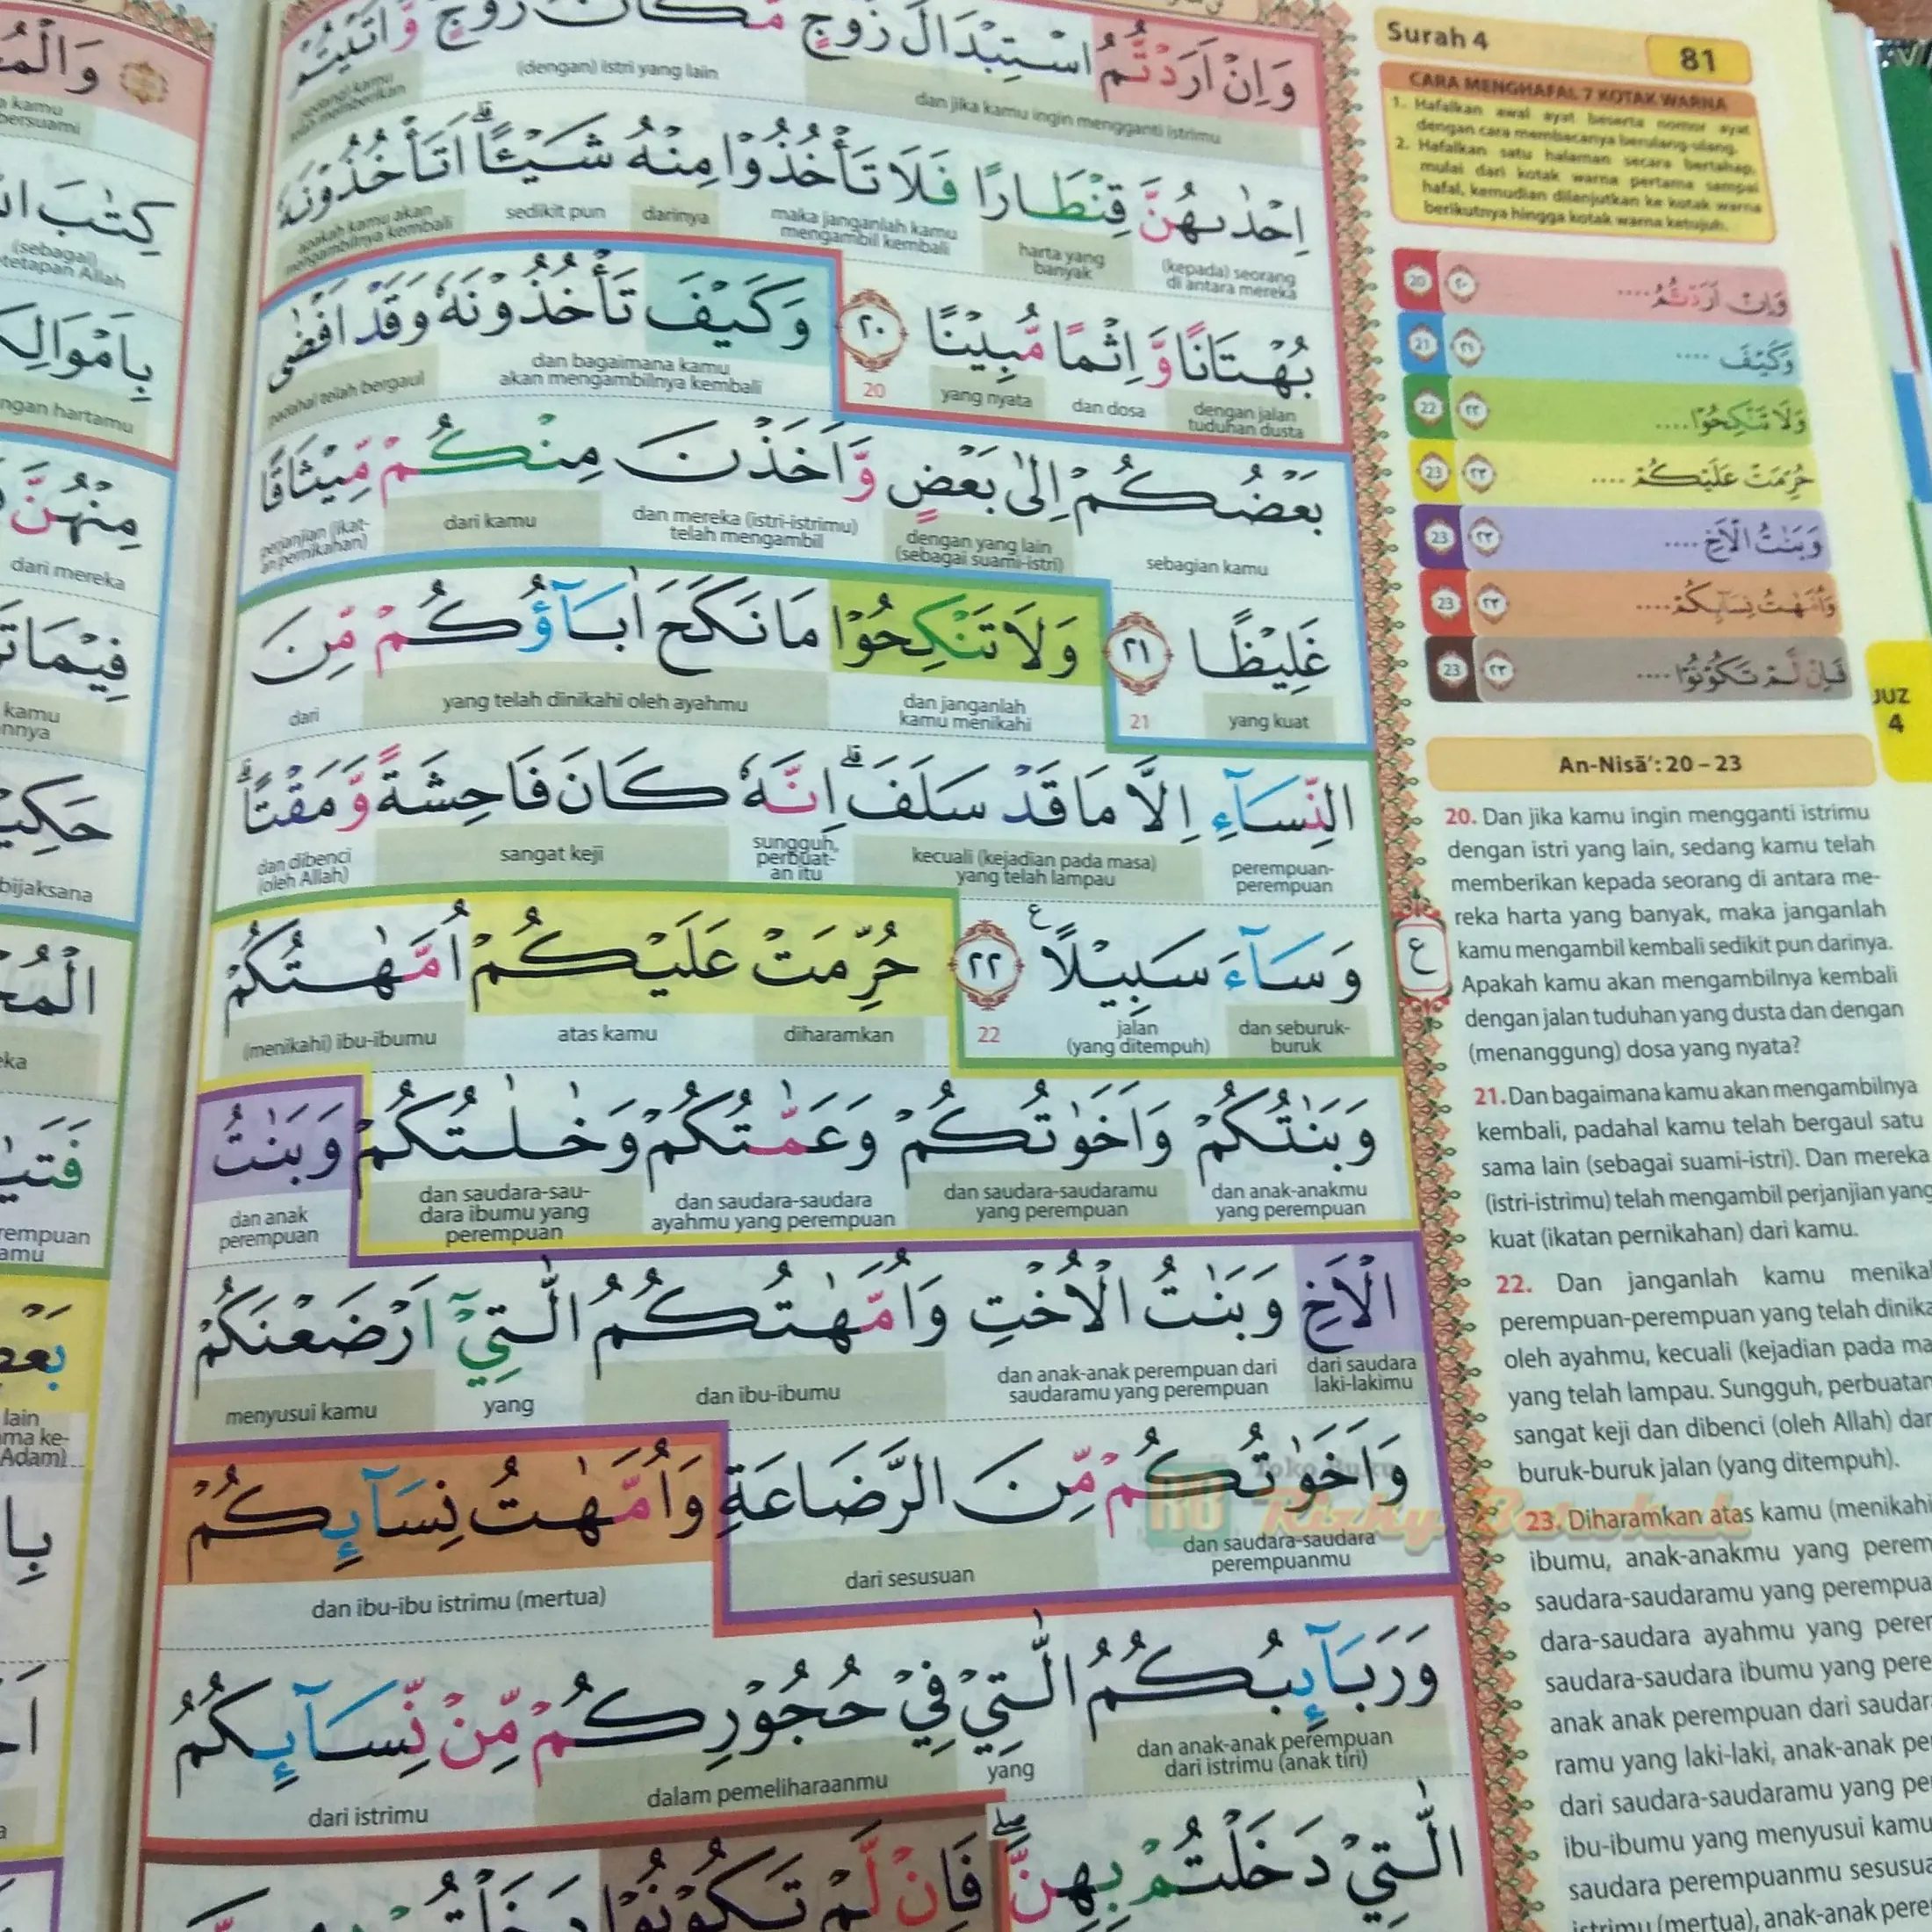 Surah 4
81
CARA MENGHAFAL 7 KOTAK WARNA
1. Hafalkan awal ayat beserta nomor ayat
dengan cara membacanya berulang-ulang.
2. Hafalkan satu halaman secara bertahap,
mulai dari kotak warna pertama sampai
hafal, kemudian dilanjutkan ke kotak warna
berikutnya hingga kotak warna ketujuh.
20 ٢٠ وَاِنْ اَرَدْتُّمُ ....
21 ٢١ وَكَيْفَ ....
22 ٢٢ وَلَا تَنْكِحُوْا ....
23 ٢٣ حُرِّمَتْ عَلَيْكُمْ ....
23 ٢٣ وَبَنٰتُ الْاَخِ ....
23 ٢٣ وَاُمَّهٰتُ نِسَاۤىِٕكُمْ ....
23 ٢٣ فَاِنْ لَّمْ تَكُوْنُوْا ....
JUZ
4
وَاِنْ اَرَدْتُّمُ اسْتِبْدَالَ زَوْجٍ مَّكَانَ زَوْجٍ وَّاٰتَيْتُمْ
dan jika kamu ingin mengganti istrimu (dengan) istri yang lain sedang kamu telah memberikan
اِحْدٰىهُنَّ قِنْطَارًا فَلَا تَأْخُذُوْا مِنْهُ شَيْـًٔا ۗ اَتَأْخُذُوْنَهٗ
(kepada) seorang di antara mereka harta yang banyak maka janganlah kamu mengambil kembali darinya sedikit pun apakah kamu akan mengambilnya kembali
بُهْتَانًا وَّاِثْمًا مُّبِيْنًا ٢٠ وَكَيْفَ تَأْخُذُوْنَهٗ وَقَدْ اَفْضٰى
dengan jalan tuduhan dusta dan dosa yang nyata 20 dan bagaimana kamu akan mengambilnya kembali padahal telah bergaul
بَعْضُكُمْ اِلٰى بَعْضٍ وَّاَخَذْنَ مِنْكُمْ مِّيْثَاقًا
sebagian kamu dengan yang lain (sebagai suami-istri) dan mereka (istri-istrimu) telah mengambil dari kamu perjanjian (ikatan pernikahan)
غَلِيْظًا ٢١ وَلَا تَنْكِحُوْا مَا نَكَحَ اٰبَاۤؤُكُمْ مِّنَ
yang kuat 21 dan janganlah kamu menikahi yang telah dinikahi oleh ayahmu dari
النِّسَاۤءِ اِلَّا مَا قَدْ سَلَفَ ۗ اِنَّهٗ كَانَ فَاحِشَةً وَّمَقْتًاۗ
perempuan-perempuan kecuali (kejadian pada masa) yang telah lampau sungguh, perbuatan itu sangat keji dan dibenci (oleh Allah)
وَسَاۤءَ سَبِيْلًا ࣖ ٢٢ حُرِّمَتْ عَلَيْكُمْ اُمَّهٰتُكُمْ
dan seburuk-buruk jalan (yang ditempuh) 22 diharamkan atas kamu (menikahi) ibu-ibumu
وَبَنٰتُكُمْ وَاَخَوٰتُكُمْ وَعَمّٰتُكُمْ وَخٰلٰتُكُمْ وَبَنٰتُ
dan anak-anakmu yang perempuan dan saudara-saudaramu yang perempuan dan saudara-saudara ayahmu yang perempuan dan saudara-saudara ibumu yang perempuan dan anak perempuan
الْاَخِ وَبَنٰتُ الْاُخْتِ وَاُمَّهٰتُكُمُ الّٰتِيْٓ اَرْضَعْنَكُمْ
dari saudara laki-lakimu dan anak-anak perempuan dari saudaramu yang perempuan dan ibu-ibumu yang menyusui kamu
وَاَخَوٰتُكُمْ مِّنَ الرَّضَاعَةِ وَاُمَّهٰتُ نِسَاۤىِٕكُمْ
dan saudara-saudara perempuanmu dari sesusuan dan ibu-ibu istrimu (mertua)
وَرَبَاۤىِٕبُكُمُ الّٰتِيْ فِيْ حُجُوْرِكُمْ مِّنْ نِّسَاۤىِٕكُمُ
dan anak-anak perempuan dari istrimu (anak tiri) yang dalam pemeliharaanmu dari istrimu
الّٰتِيْ دَخَلْتُمْ بِهِنَّۖ فَاِنْ لَّمْ تَكُوْنُوْا دَخَلْتُمْ
An-Nisā': 20 – 23
20. Dan jika kamu ingin mengganti istrimu
dengan istri yang lain, sedang kamu telah
memberikan kepada seorang di antara me-
reka harta yang banyak, maka janganlah
kamu mengambil kembali sedikit pun darinya.
Apakah kamu akan mengambilnya kembali
dengan jalan tuduhan yang dusta dan dengan
(menanggung) dosa yang nyata?
21. Dan bagaimana kamu akan mengambilnya
kembali, padahal kamu telah bergaul satu
sama lain (sebagai suami-istri). Dan mereka
(istri-istrimu) telah mengambil perjanjian yang
kuat (ikatan pernikahan) dari kamu.
22. Dan janganlah kamu menika
perempuan-perempuan yang telah dinika
oleh ayahmu, kecuali (kejadian pada ma
yang telah lampau. Sungguh, perbuatan
sangat keji dan dibenci (oleh Allah) dan
buruk-buruk jalan (yang ditempuh).
23. Diharamkan atas kamu (menikahi
ibumu, anak-anakmu yang perem
saudara-saudaramu yang perempua
dara-saudara ayahmu yang perem
saudara-saudara ibumu yang pere
anak anak perempuan dari saudar
ramu yang laki-laki, anak-anak pe
dari saudara-saudaramu yang pe
ibu-ibumu yang menyusui kamu
saudara perempuanmu sesusua
istrimu (mertua), anak-anak pere
ع
Toko Buku
RB Rizky Barokah